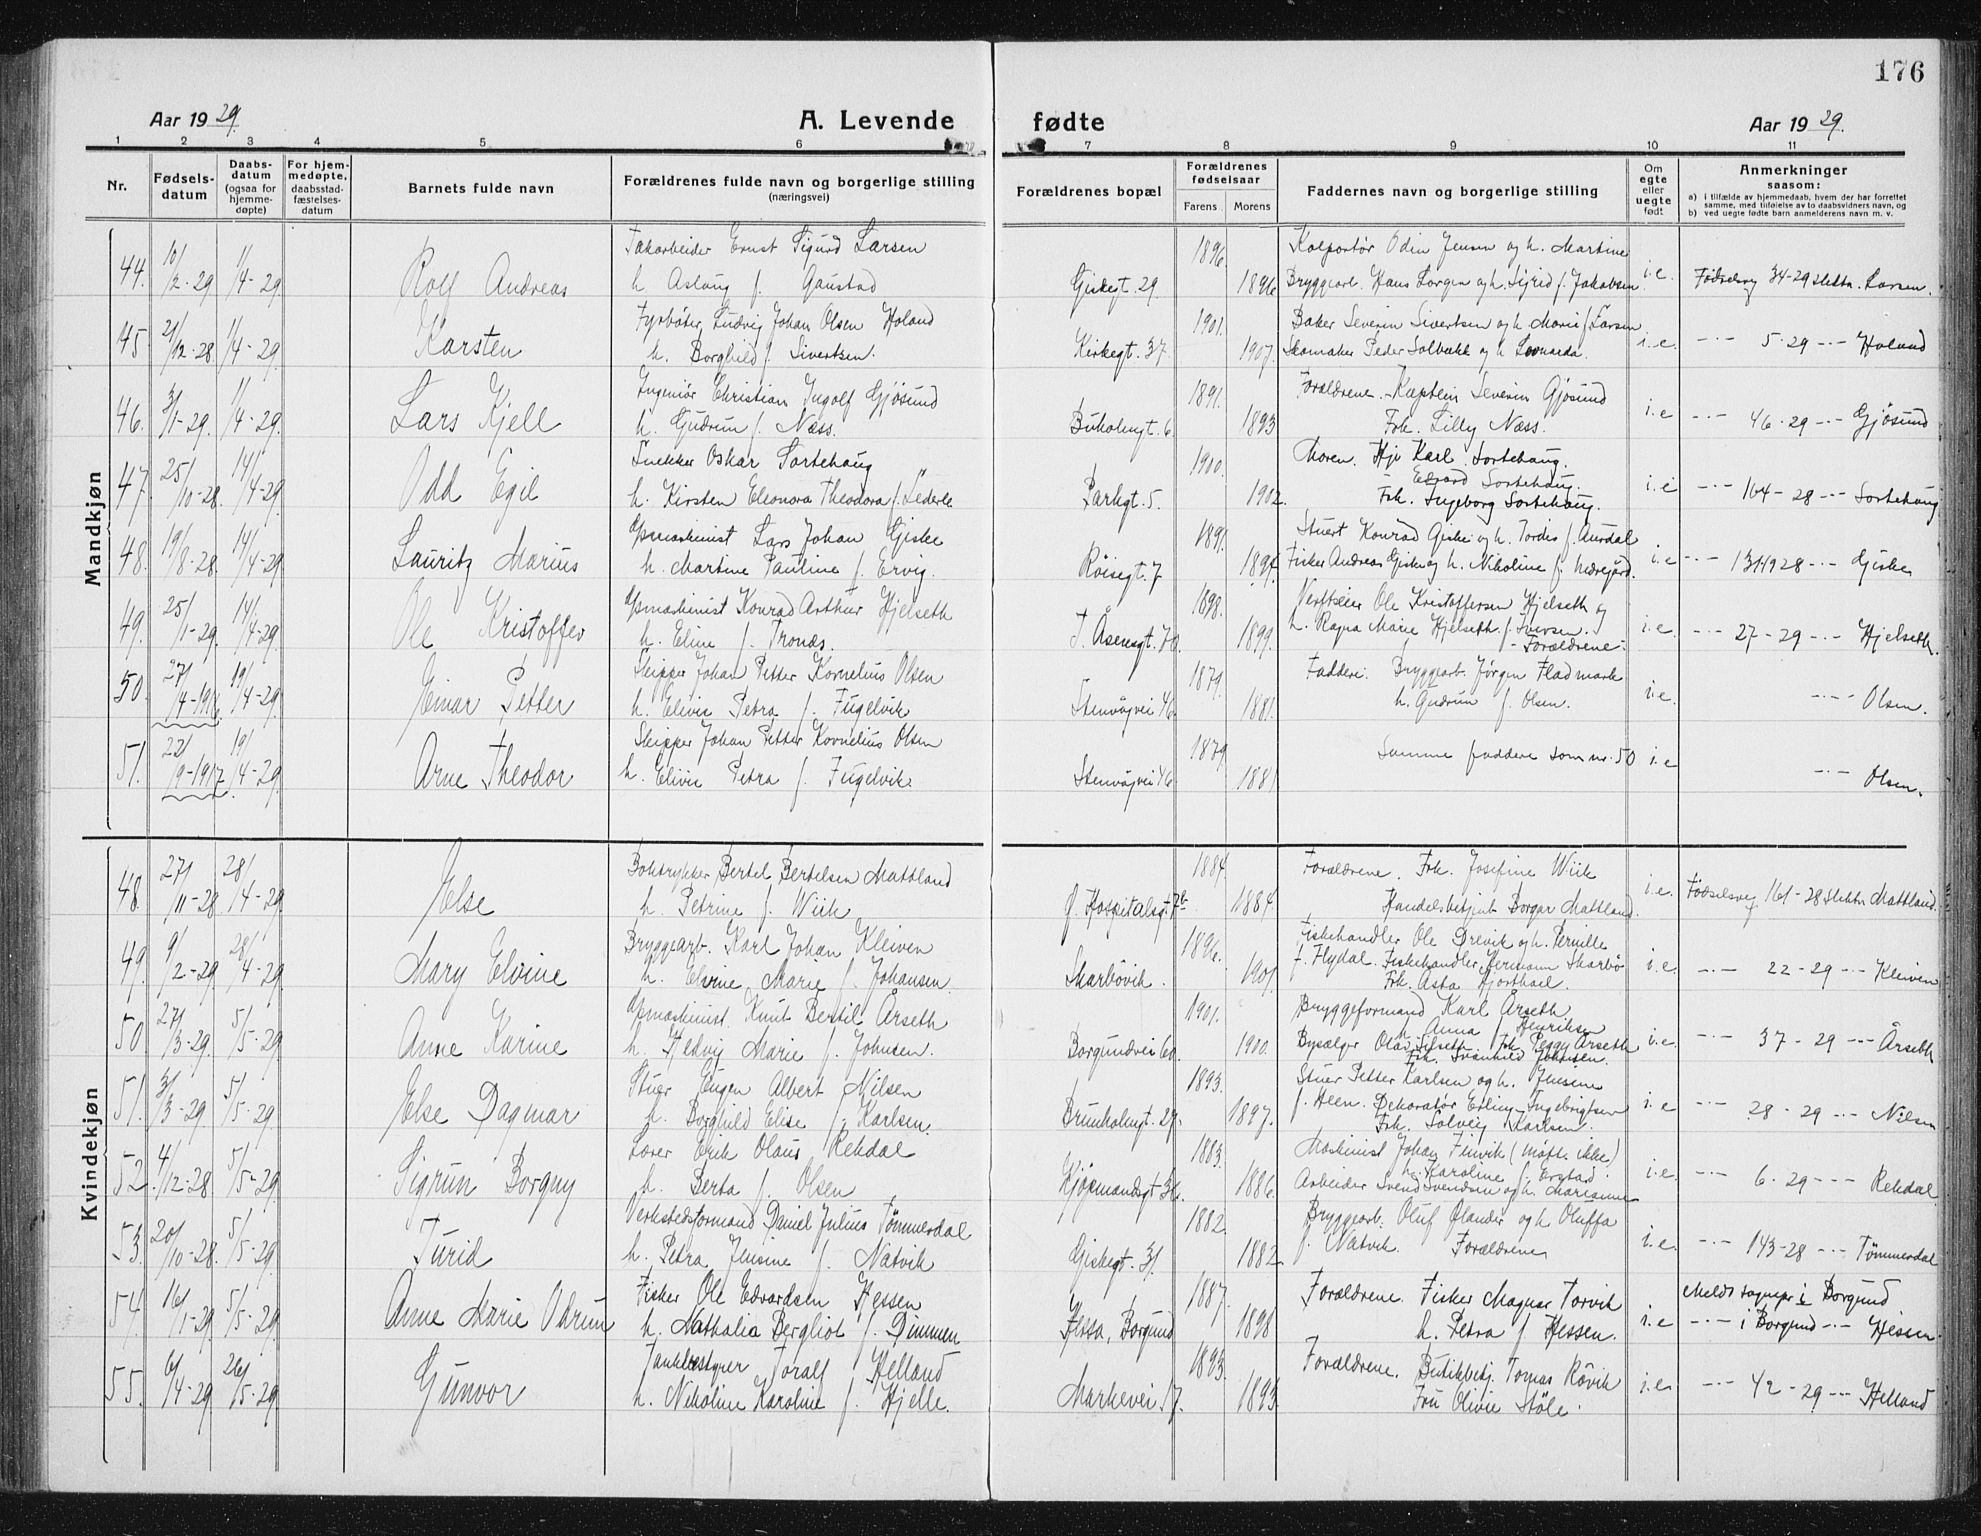 176
Aar 1929. A. Levende fødte Aar 1929.
1 2 3 4 5 6 7 8 9 10 11
Nr. Fødsels-datum Daabs-datum (ogsaa for hjemme-døpte) For hjem-medøpte, daabsstad-fæstelses-datum Barnets fulde navn Forældrenes fulde navn og borgerlige stilling (næringsvei) Forældrenes bopæl Forældrenes fødselsaar Farens Morens Faddernes navn og borgerlige stilling Om egte eller uegte født Anmerkninger saasom:
a) i tilfælde av hjemmedaab, hvem der har forrettet samme, med tilføielse av to daabsvidners navn, og
b) ved uegte fødte barn anmelderens navn m. v.
Mandkjøn
44. 10/2-29 1/4-29. Rolf Andreas
Fakarbeider Ernst Sigurd Larsen
h. Aslaug f. Gaustad
Giskegt. 29. 1896. 1896
Kolportør Odin Jensen og h. Martine
Bryggearb. Hans Lorgen og h. Sigrid f. Jakobsen
i.e. Fødselsreg 34-29 Slektn. Larsen.
45. 21/12-28. 1/4-29. Karsten
Fyrbøter Ludvig Johan Olsen Holand
h. Borghild f. Sivertsen.
Kirkegt. 37 1901. 1907.
Baker Severin Sivertsen og h. Marie f. Larsen
Skomaker Peder Solbakk og h. Leonarda.
i.e. -"- 5-29 -"- Holand
46. 3/1-29. 1/4-29. Lars Kjell
Ingeniør Christian Ingolf Gjøsund
h. Gudrun f. Næss.
Buholmgt. 6 1891. 1893
Forældrene. Kaptein Severin Gjøsund
Frk. Lilly Næss.
i.e -"- 46-29 -"- Gjøsund
47. 25/10-28. 14/4-29. Odd Egil
Snekker Oskar Sortehaug
h. Kirsten Eleonora Theodora f. Lederle
Parkgt. 5. 1900. 1902.
Moren. Hj Karl Sortehaug.
Edvard Sortehaug.
Frk. Ingeborg Sortehaug.
i.e -"- 164-28 -"- Sortehaug
48. 19/8-28. 14/4-29. Lauritz Marius
Opmaskinist Lars Johan Giske
h. Martine Pauline f. Ervig.
Røisegt. 7 1891.
Stuert Konrad Giske og h. Tordis f. Aurdal
Fisker Andreas Giske og h. Nikoline f.
i.e -"- 131-1928 -"- Giske
49. 25/1-29. 14/4-29. Ole Kristoffer
Opmaskinist Konrad Arthur Hjelseth
h. Eline f. Tronæs.
T. Åsensgt. 70. 1898. 1899.
Verftseier Ole Kristoffersen Hjelseth og
h. Ragna Marie Hjelseth f. Iversen.
- Forældrene -
i.e. -"- 27-29 -"- Hjelseth.
50. 27/4-1914. 19/4-29. Einar Petter
Skipper Johan Petter Kornelius Olsen
h. Elivie Petra f. Fugelvik
Stenvågvei 46 1879. 1881.
Faddere: Bryggearb. Jørgen Fladmark
h. Gudrun f. Olsen.
i.e. -"- Olsen.
51. 22/9-1917. 19/4-29. Arne Theodor
Skipper Johan Petter Kornelius Olsen
h. Elivie Petra f. Fugelvik
Stenvågvei 46 1879. 1881
Samme faddere som nr. 50
i.e -"- Olsen.
Kvindekjøn
48. 27/11-28. 28/4-29. Else
Boktrykker Bertel Bertelsen Mattland
h. Petrine f. Wiik
g. Hospitalsgt. 7b 1884. 1884.
Forældrene. Frk. Josefine Wiik
Handelsbetjent Borgar Mattland.
i.e. Fødselsreg. 161-28 Slektn Mattland.
49. 9/2-29 28/4-29. Mary Elvine
Bryggearb. Karl Johan Kleiven
h. Elvine Marie f. Johansen.
Skarbövik. 1896. 1901.
Fiskehandler Ole Drevik og h. Pernille
f. Flydal. Fiskehandler Hermann Skarbö
Frk. Asta
i.e. -"- 22-29 -"- Kleiven
50 27/3-29. 5/5-29. Anne Karine
Opmaskinist. Knut Bertil Årseth
h. Hedvig Marie f. Johnsen.
Borgundvei 60. 1901. 1900.
Bryggeformand Karl Årseth
h. Anna f. Henriksen
Frk. Peggy Årseth
Frk. Svanhild Johnsen.
i.e. -"- 37-29 -"- Årseth
51. 3/3-29 5/5-29. Else Dagmar
Stuer Jørgen Albert Nilsen
h. Borghild Elise f. Karlsen.
Brunholmgt. 29. 1893. 1897.
Stuer Petter Karlsen og h. Jensine
f. Heen. Dekoratør Erling Ingebrigtsen
Frk. Solveig Karlsen.
i.e -"- 28-29 -"- Nilsen
52. 4/12-28 5/5-29. Sigrun Borgny
Lærer Erik Olaus Rekdal
h. Berta f. Olsen
Kjøpmandsgt 36. 1883. 1886.
Maskinist Johan Finvik (møtt. ikke)
h. Karoline f. Orstad.
Arbeider Svend Svendsen og h. Marianne
i.e. -"- 6-29 -"- Rekdal
53. 20/10-28. 5/5-29. Turid
Verkstedsformand Daniel Julius Tømmerdal
h. Petra Jensine f. Natvik
Giskegt. 31. 1882. 1882.
Bryggearb. Oluf Ølander og h. Oluffa
f. Natvik. Forældrene
i.e. -"- 143-28 -"- Tømmerdal
54. 16/1-29. 5/5-29. Anne Marie Odrun
Fisker Ole Edvardsen Hessen
h. Nathalia Bergliot f. Dimmen
Hessa, Borgund 1887. 1898
Forældrene. Fisker Magnus Torvik
h. Petra f. Hessen.
i.e Meldt sognepr i Borgund
-"- i Borgund -"- Hessen.
55. 6/4-29 26/5-29. Gunvor
Tankbestyrer Toralf Helland
h. Nikoline Karoline f. Hjelle.
Markevei 17. 1893. 1893
Forældrene. Butikbetj. Tomas Røvik
Fru Olivie Støle.
i.e. -"- 42-29 -"- Helland